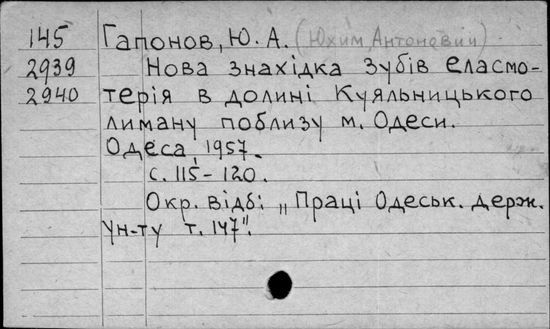 145 Гапонов, Ю. А. (Юхим Антонович)
2939 Нова знахідка зубів еласмо-
2940 терія в долині Куяльницького
лиману поблизу м. Одеси.
Одеса, 1957.
с. 115-120.
Окр. відб: „Праці Одеськ. держ.
Ун-ту т. 147".